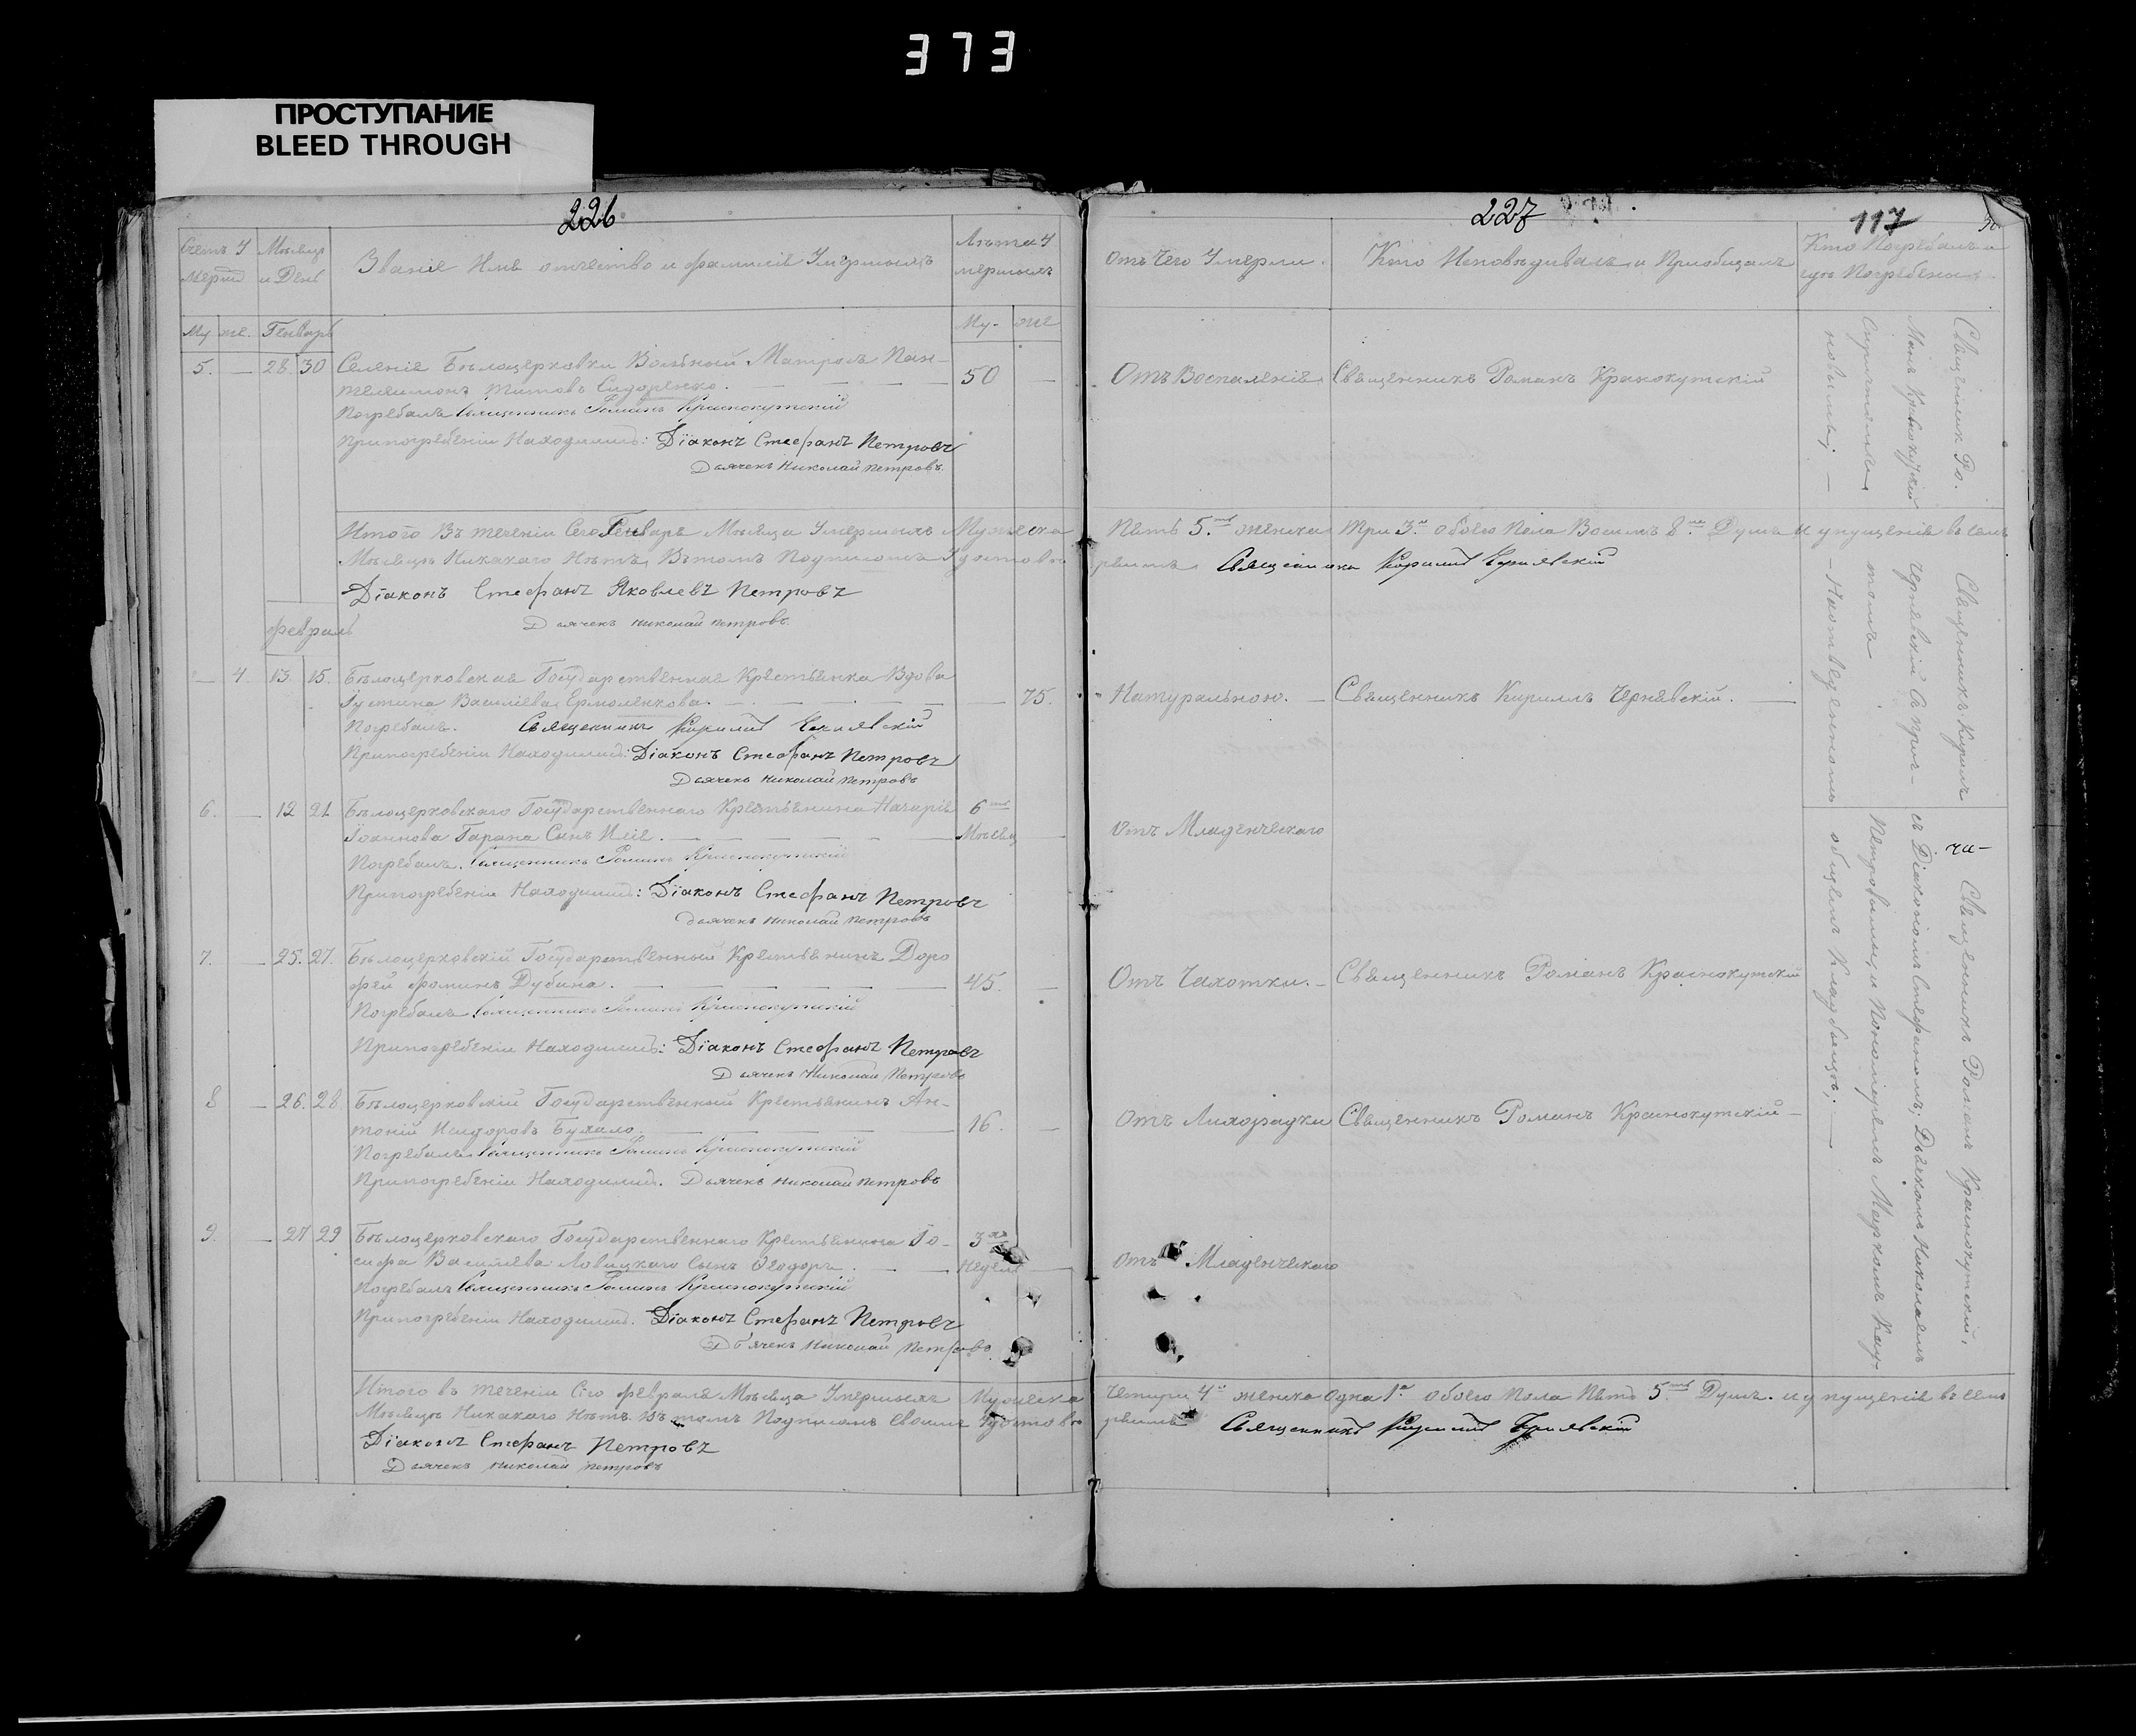 373
ПРОСТУПАНИЕ
BLEED THROUGH
226
Счетъ У мерш Мѣсяцъ и День Званіе Имя отчество и фамилія Умершихъ Лѣта У мершихъ
Му же. Генварь Му- же
5. — 28. 30 Селенія Бѣлоцерковки Вольный Матрозъ Пан-
телеимонъ Титовъ Сидоренко. — — — 50 —
Погребалъ Священникъ Романъ Краснокутскій
Припогребеніи Находились: Діаконъ Стефанъ Петровъ
Дьячекъ Николай Петровъ.
Итого Въ теченіи Сего Генваря Мѣсяца Умершихъ Мужеска
Мѣсяцъ Никакого Нѣтъ, Въ томъ Подписомъ Удостовѣ
Діаконъ Стефанъ Яковлевъ Петровъ
Дьячекъ Николай Петровъ.
Февраль
— 4 13. 15. Бѣлоцерковская Государственная Крестьянка Вдова
Іустина Василіева Ермоленкова. — — — — 75.
Погребалъ. Священникъ Кириллъ Чернявскій
Припогребеніи Находились: Діаконъ Стефанъ Петровъ
Дьячекъ Николай Петровъ
6. — 12 21 Бѣлоцерковскаго Государственнаго Крестьянина Назарія 6
Іоаннова Гарана Сынъ Илія. — — — — Мѣсяц —
Погребалъ. Священникъ Романъ Краснокутскій
Припогребеніи Находились: Діаконъ Стефанъ Петровъ
Дьячекъ Николай Петровъ
7. — 25. 27. Бѣлоцерковскій Государственный Крестьянинъ Доро
фей Фоминъ Дубина. — — — — 45. —
Погребалъ Священникъ Романъ Краснокутскій
Припогребеніи Находились: Діаконъ Стефанъ Петровъ
Дьячекъ Николай Петровъ
8 — 26. 28. Бѣлоцерковскій Государственный Крестьянинъ Ан-
тоній Исидоровъ Бухало. — — — 16. —
Погребалъ Священникъ Романъ Краснокутскій
Припогребеніи Находились. Дьячекъ Николай Петровъ
9. — 27 29 Бѣлоцерковскаго Государственнаго Крестьянина Іо- 3
сифа Василіева Ловицкаго Сынъ Ѳеодоръ. — — Недѣл —
Погребалъ Священникъ Романъ Краснокутскій
Припогребеніи Находились. Діаконъ Стефанъ Петровъ
Дьячекъ Николай Петровъ
Итого въ теченіи Сего февраля Мѣсяца Умершихъ Мужеска
Мѣсяцъ Никакого Нѣтъ. Въ томъ Подписомъ Своимъ Удостовѣ
Діаконъ Стефанъ Петровъ
Дьячекъ Николай Петровъ
227
117
Отъ Чего Умерли. Кто Исповѣдивалъ и Приобщалъ Кто Погребалъ и гдѣ Погребены
Отъ Воспаленія Священникъ Романъ Краснокутскій
Пять 5. женска Три 3. обоего Пола Восимъ 8. Душъ и упущенія въ семъ
ряемъ. Священникъ Кириллъ Чернявскій
Натуральною. — Священникъ Кириллъ Чернявскій. —
Отъ Младенческаго
Отъ Чахотки. — Священникъ Романъ Краснокутскій
Отъ Лихорадки Священникъ Романъ Краснокутскій —
Отъ Младенческаго
Четыри 4 женска одна 1 обоего Пола Пять 5. Душъ. и упущенія въ семъ
ряемъ Священникъ Кириллъ Чернявскій
Священник Ро.
Манъ Краснокутскій
Священникъ Кирилъ
Чернявскій Съ прич-
томъ
— На отведенномъ
Священникъ Романъ Краснокутскій,
съ Діакономъ Стефаномъ; Дьячкомъ Николаемъ
Петровыми, и Пономаремъ
общемъ Кладбищѣ; —